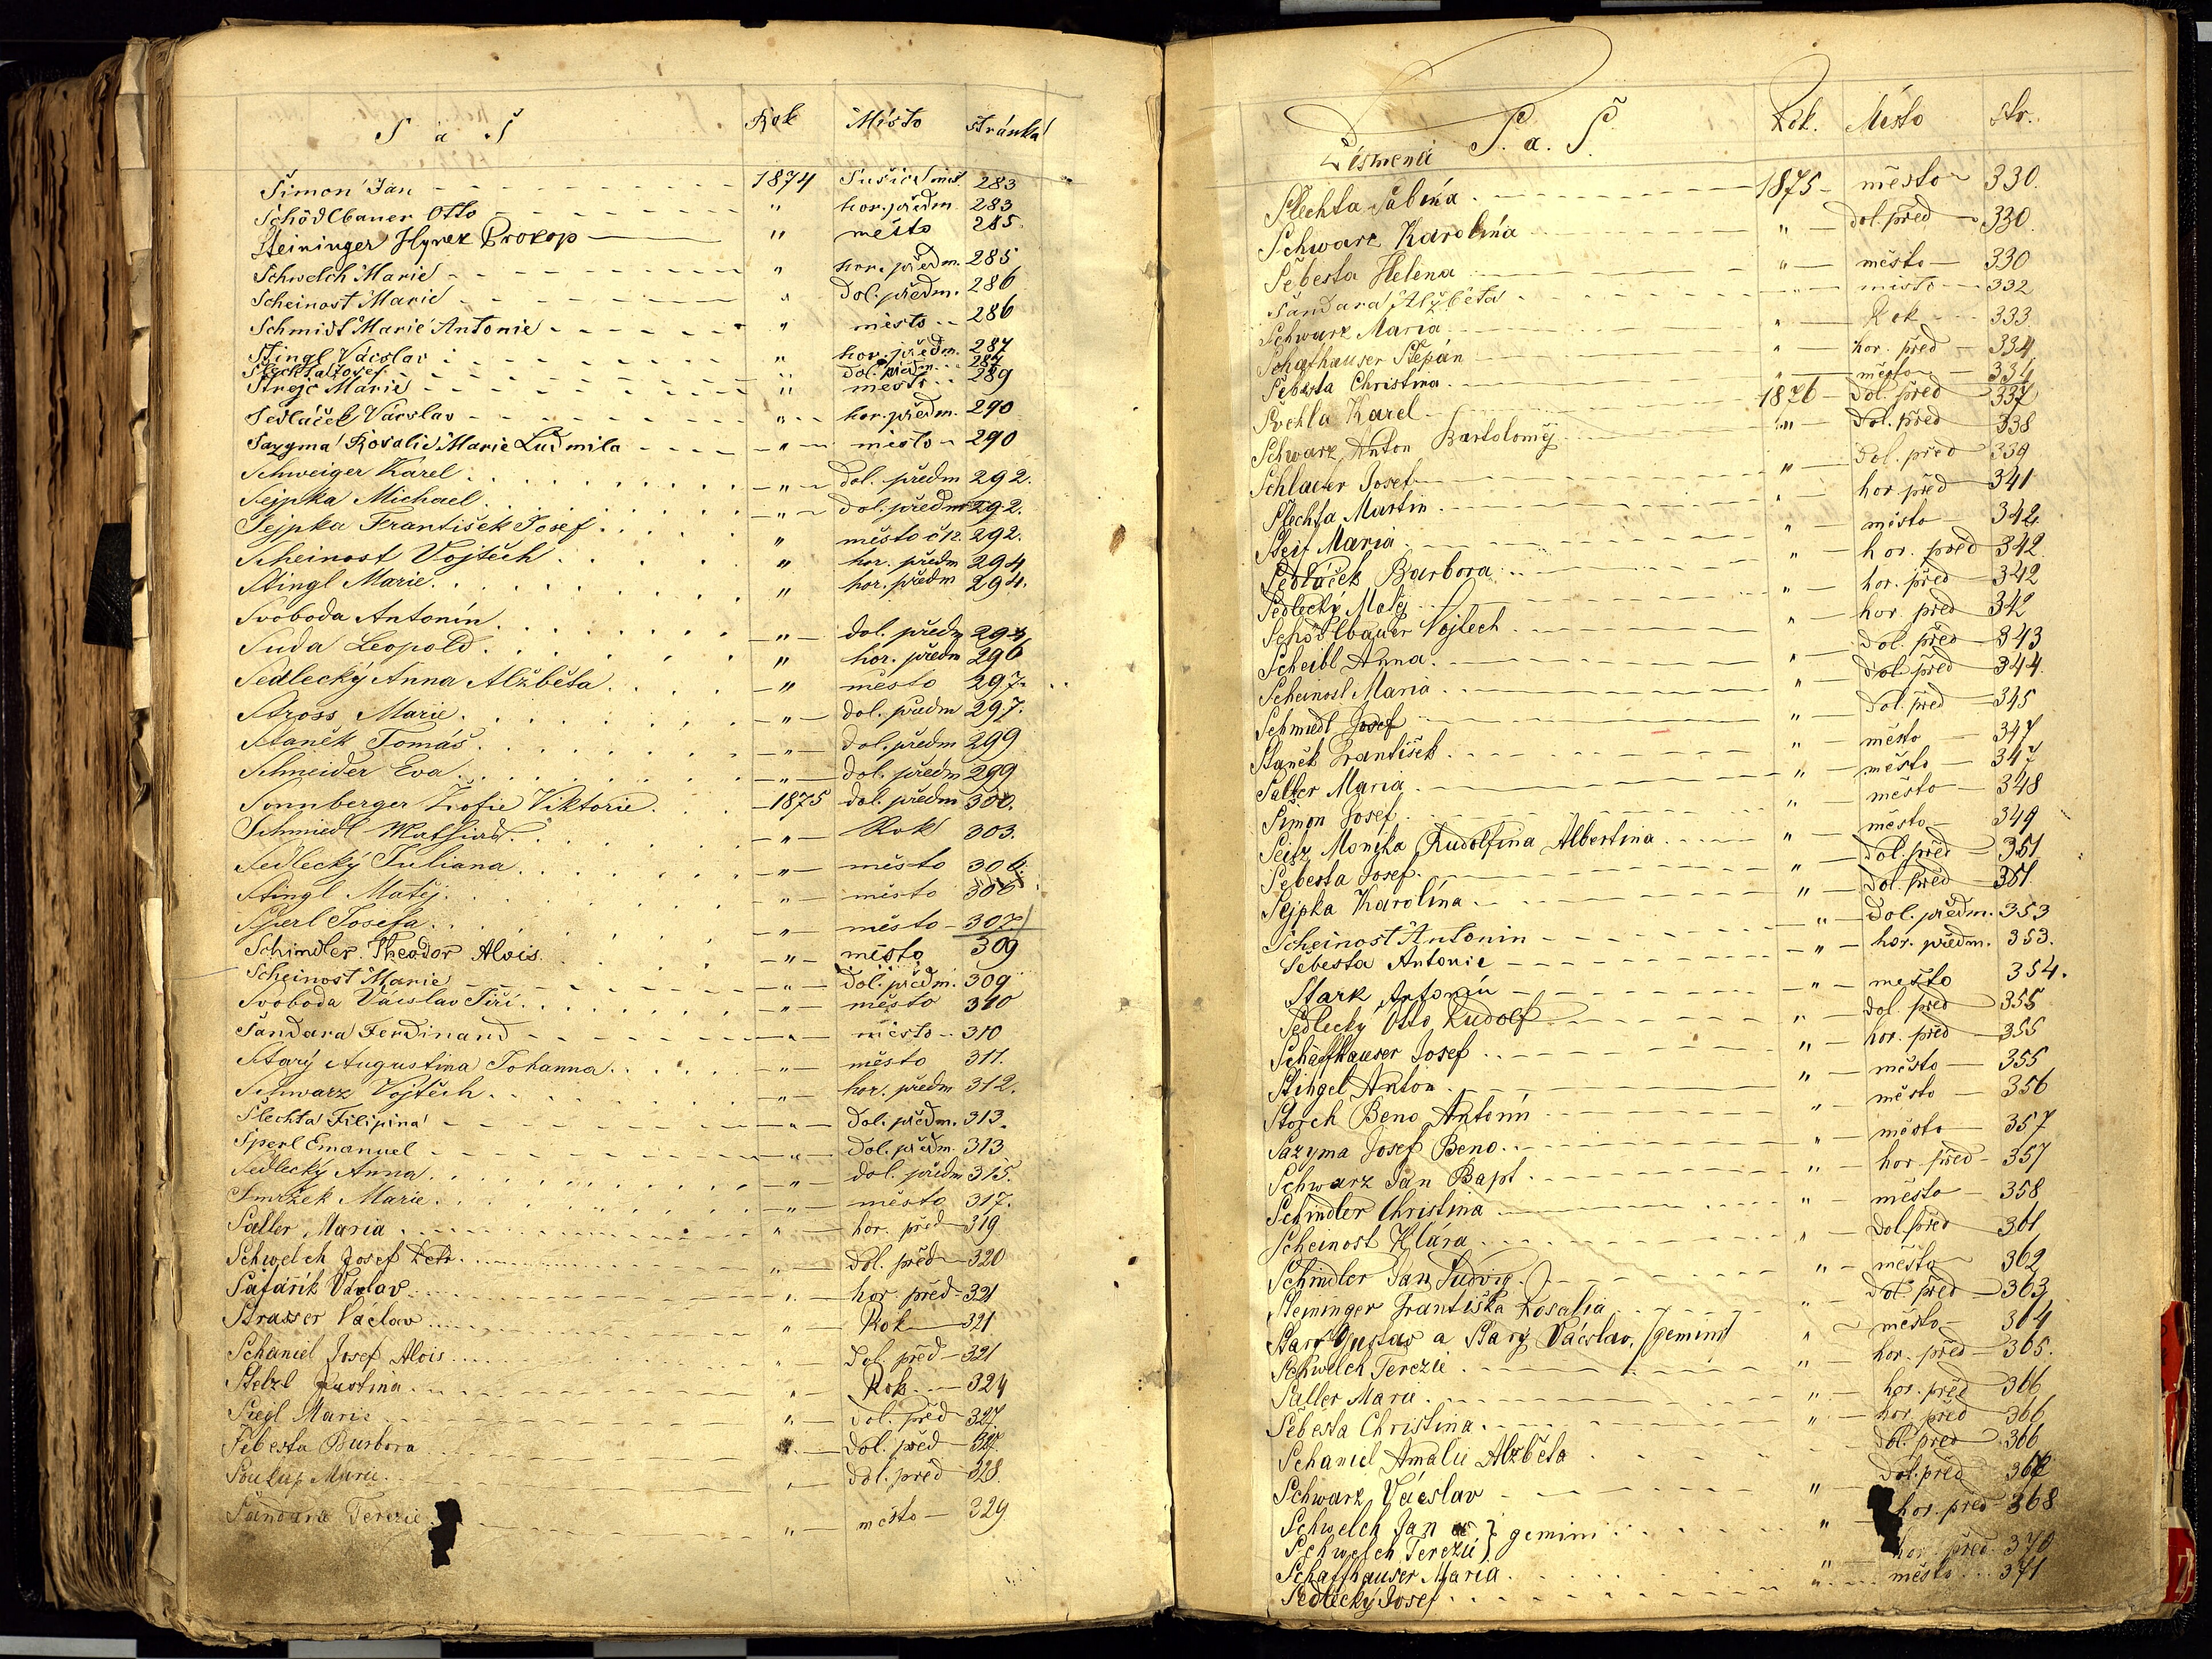 S a Š Rok Místo stránka
Šimon Jan 1874 Sušice 283
Schödlbauer Otto " hor. předm. 283
Steininger Hynek Prokop " město 285
Schwelch Marie " hor. předm. 285
Scheinost Marie " dol. předm. 286
Schmidt Marie Antonie " město 286
Stingl Václav " hor. předm. 287
Šlechta Josef " dol. předm. 287
Strejc Marie " město 289
Sedláček Václav " hor. předm. 290
Sazyma Rosalie Marie Ludmila " město 290
Schweiger Karel " dol. předm 292.
Sejpka Michael " dol. předm 292.
Sejpka František Josef " město č 12. 292.
Scheinost Vojtěch " hor. předm 294
Stingl Marie " hor. předm 294.
Svoboda Antonín " dol. předm
Suda Leopold " hor. předm 296
Sedlecký Anna Alžběta " město 297.
Stross Marie " dol. předm 297.
Staněk Tomáš " dol. předm 299
Schneider Eva " dol. předm 299
Sonnberger Žofie Viktorie 1875 dol. předm 300.
Schmiedl Mathias " Rok 303.
Sedlecký Juliana " město 306.
Stingl Matěj " město 306
Sperl Josefa " město 307
Schindler Theodor Alois " město 309
Scheinost Marie " dol. předm. 309
Svoboda Václav Jiří " město 310
Šandara Ferdinand " město 310
Starý Augustina Johanna " město 311.
Schwarz Vojtěch " hor. předm 312.
Šlechta Filipina " dol. předm. 313.
Šperl Emanuel " dol. předm. 313
Sedlecký Anna " dol. předm 315.
Smržek Marie " město 317.
Saller Maria " hor. před 319
Schwelch Josef Petr " dol. před 320
Šafařík Václav " hor. před 321
Strasser Václav " Rok 321
Schaniel Josef Alois " dol. před 321
Stelzl Justina " Rok 324
Siegl Marie " dol. před 327.
Šebesta Barbora " dol. před 327.
Soukup Marie " dol. před 328.
Šandara Terezie " město 329
Písmena S. a. Š. Rok. Město str.
Šlechta Sabina 1875 město 330.
Schwarz Karolína " dol. před 330.
Šebesta Helena " město 330
Šandara Alžběta " město 332
Schwarz Maria " Rok 333
Schafhauser Štěpán " hor. před 334
Šebesta Christina " město 334
Karel 1876 dol. před 337
Schwarz Anton Bartoloměj " dol. před 338
Josef " dol. před 339
Šlechta Martin " hor před 341
Maria " město 342
Sedláček Barbora " hor. před 342
Sedlecký Matěj " hor. před 342
Schödlbauer Vojtech " hor před 342
Scheibl Anna " dol. před 343
Scheinost Maria " dol. před 344
Schmiedl Josef " dol. před 345
Staněk František " město 347
Saller Maria " město 347
Šimon Josef " město 348
Seitz Monika Rudolfina Albertina " město 349
Šebesta Josef " dol. před 351
Sejpka Karolína " dol. před 351
Scheinost Antonin " dol. předm. 353
Šebesta Antonie " hor. předm. 353.
Stark Antonín " město 354.
Sedlecký Otto Rudolf " dol. před 355
Schaffhauser Josef " hor. před 355
Stingel Anton " město 355
Storch Beno Antonín " město 356
Sazyma Josef Beno " město 357
Schwarz Jan Bapt. " hor. před 357
Schindler Christina " město 358
Scheinost Klára " dol. před 361
Schindler Jan Ludvig " město 362
Steininger Františka Rosalia " dol. před 363
Starý Gustav a Starý Václav, (gemini) " město 364
Schwelch Terezie " hor. před 365.
Saller Marie " hor. před 366
Šebesta Christina " hor. před 366
Schaniel Amalie Alžběta dol. před 366
Schwarz Václav " dol. před
Schwelch Jan a } gemini " hor. před 368
Schwelch Terezie
Schaffhauser Maria " hor. před 370
Sedlecký Josef " město 371